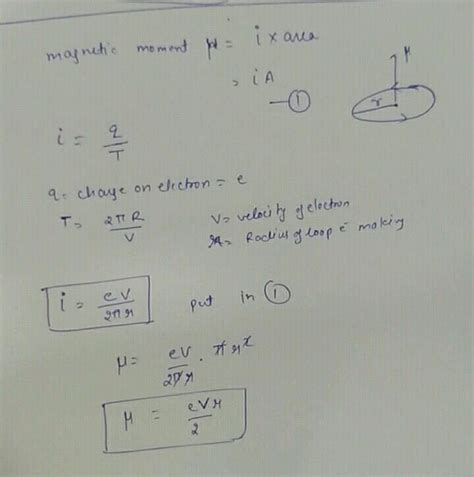 magnetic moment μ = i x area
= iA
— ①
μ
r
i = q/T
q = charge on electron = e
T = 2πR/V V = velocity of electron
r = Radius of loop e⁻ making
i = eV/2πr put in ①
μ = eV/2πr . πr²
μ = eVr/2